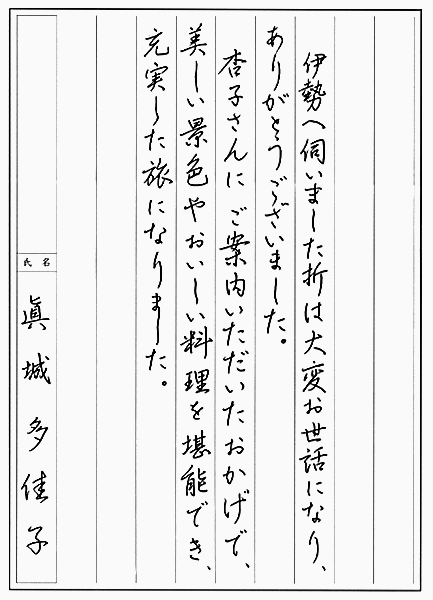 伊勢へ伺いました折は大変お世話になり、
ありがとうございました。
杏子さんにご案内いただいたおかげで、
美しい景色やおいしい料理を堪能でき、
充実した旅になりました。
氏名
眞城多佳子